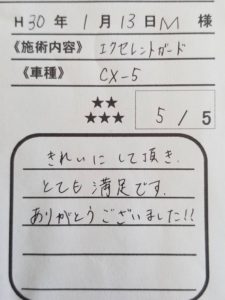 H30年 1月13日 M 様
《施術内容》 エクセレントガード
《車種》 CX-5
★★
★★★ 5 / 5
きれいにして頂き、
とても満足です。
ありがとうございました!!